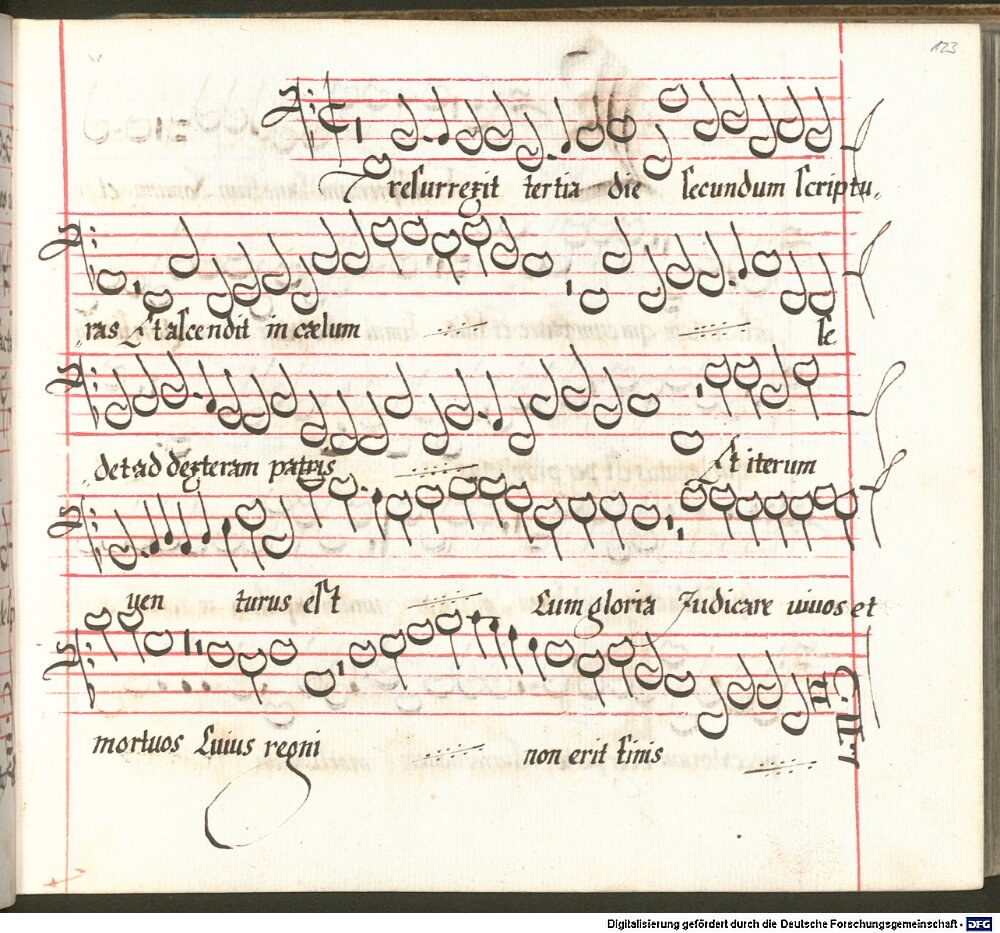 123
Et resurrexit tertia die secundum scriptu„
„ras Et ascendit in cælum se
„det ad dexteram patris Et iterum
ven turus est Cum gloria Judicare vivos et
mortuos Cuius regni non erit finis
Et
Digitalisierung gefördert durch die Deutsche Forschungsgemeinschaft - DFG